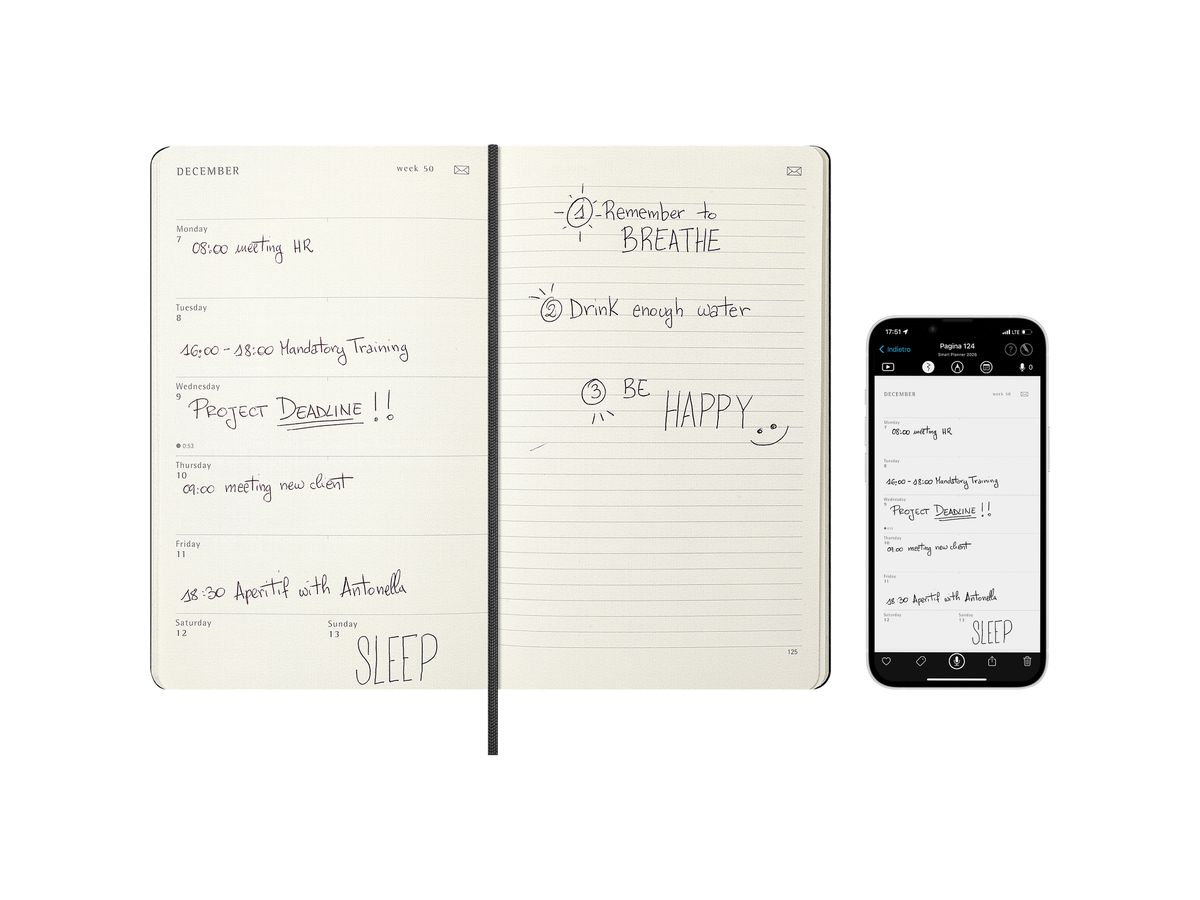 DECEMBER week 50
Monday
7
08:00 meeting HR
Tuesday
8
16:00 - 18:00 Mandatory Training
Wednesday
9
PROJECT DEADLINE !!
0:53
Thursday
10
09:00 meeting new client
Friday
11
18:30 Aperitif with Antonella
Saturday
12
Sunday
13
SLEEP
1 - Remember to
BREATHE
2 Drink enough water
3 BE
HAPPY
125
17:51 LTE
Indietro Pagina 124
Smart Planner 2026
0
DECEMBER week 50
Monday
7
08:00 meeting HR
Tuesday
8
16:00 - 18:00 Mandatory Training
Wednesday
9
PROJECT DEADLINE !!
Thursday
10
09:00 meeting new client
Friday
11
18 30 Aperitif with Antonella
Saturday
12
Sunday
13
SLEEP